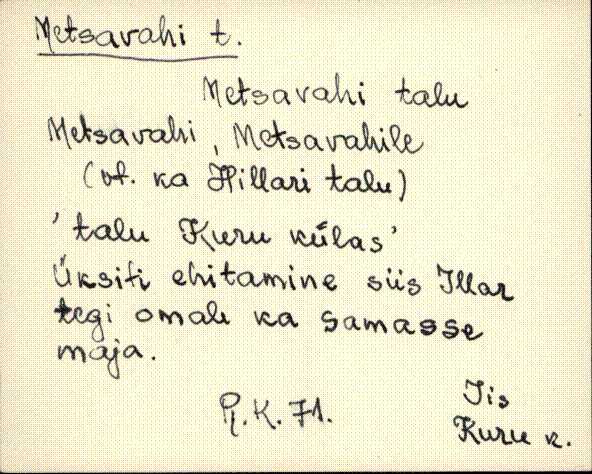 Metsavahi t.
Metsavahi talu
Metsavahi, Metsavahile
(vt. ka Hillari talu)
'talu Kuru külas'
Üksiti ehitamine siis Illar
tegi omale ka samasse
maja.
R.K. 71.
Iis
Kuru k.